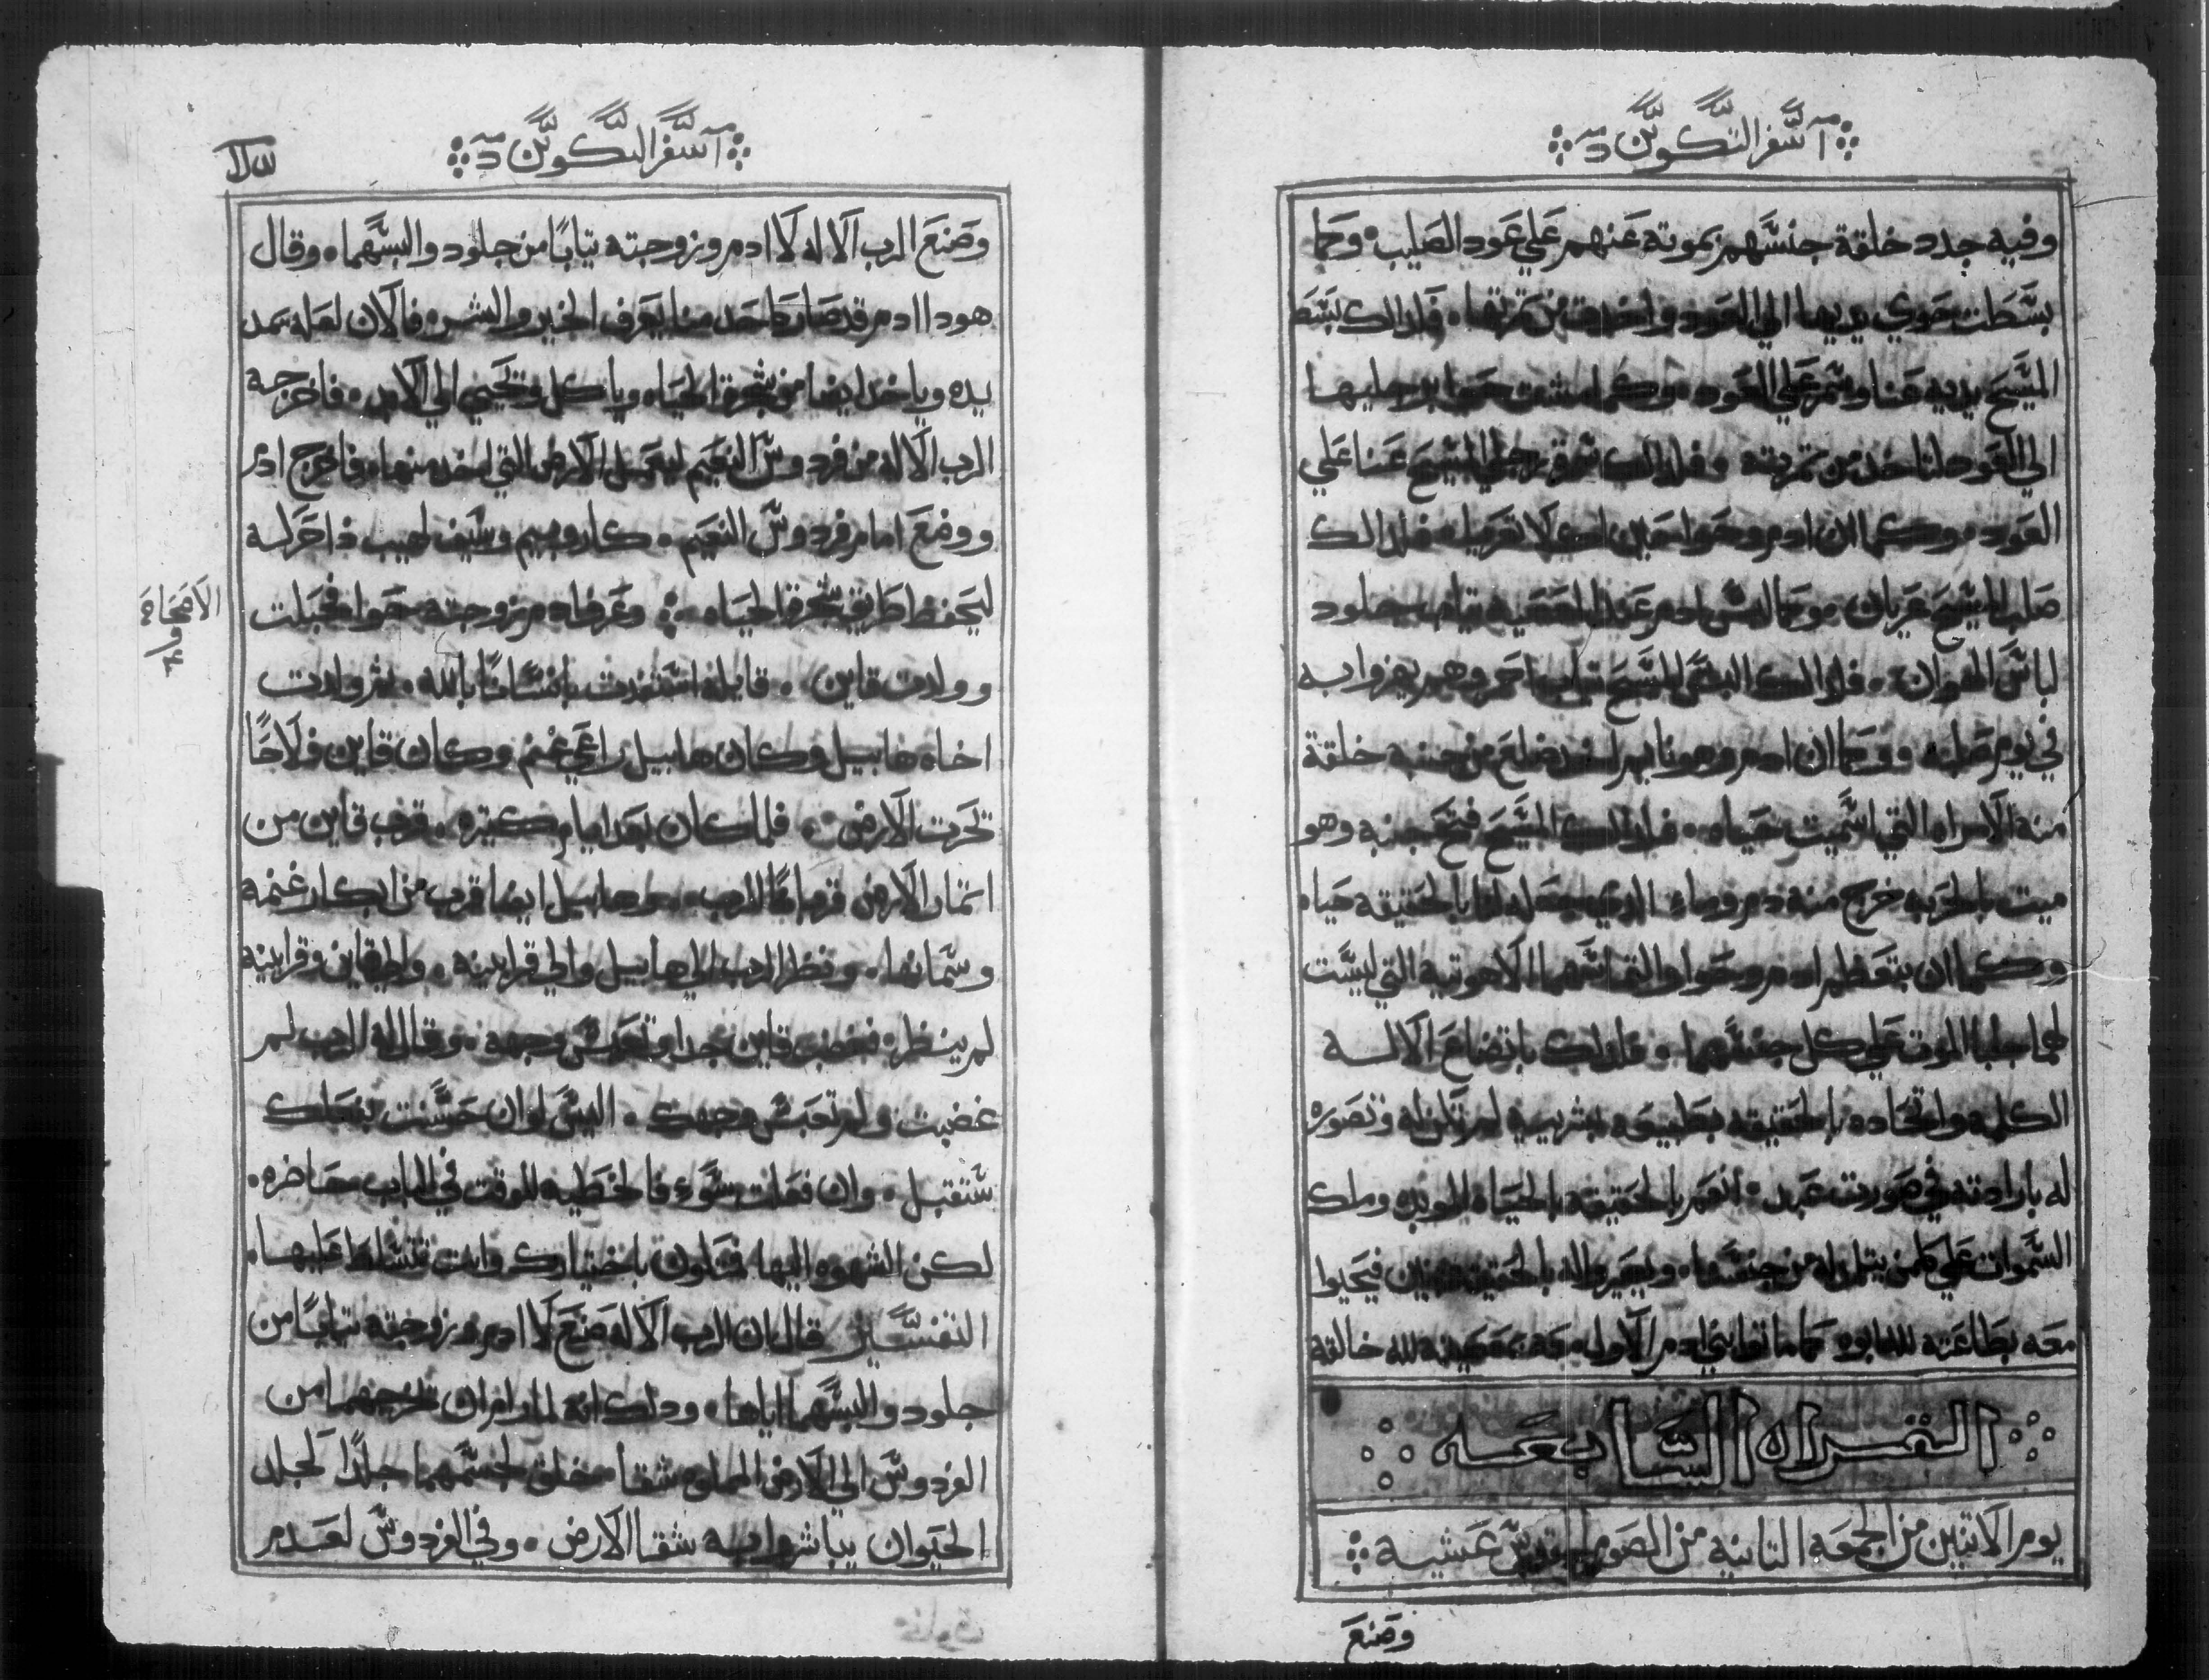 سفر التكوين
وفيه جدد خلقة جنسهم بموته عنهم علي عود الصليب وكما
بسطت حوي يديها الي العود واخدت من تمرتها فلدالك بسط
المسيح يديه عنا وسمر علي العود وكما مشت حوا برجليها
الي العود لتاخد من تمرته فلدالك رجلي المسيح عنا علي
العود وكما ان ادم وحوا لا تعريا فلدالك
صلب المسيح عريان وكما لبس ادم المعصيه تياب جلود
لباس الهوان فلدالك البس المسيح تياب احمر وهم يهزوا به
في يوم صلبه وكما ان ادم وهو نايم اخد ضلع من جنبه خلقة
منه الامراه التي اسميت حياه فلدالك المسيح فتح جنبه وهو
ميت بالحربه خرج منه دم وماء الدي جعله لنا بالحقيقه حياه
وكما ان بتعظيم ادم وحوا والتماسهما الاهوتيه التي ليست
لهما جلبا الموت علي كل جنسهما فلدلك باتضاع الاله
الكلمه واتحاده بالحقيقه بطبيعه بشريه لم تكن له وتصوره
له بارادته في صورت عبد انعم بالحقيقه بالحياه الموبده وملك
السموات علي كلمن من جنسها ويصير واله بالحقيقه فيحيوا
معه بطاعته لله ابوه كما ماتوا بني ادم الاول معه بمعصيته لله خالقه
القراه السابعه
يوم الاتنين من الجمعه التانيه من الصوم المقدس عشيه
وصنع
سفر التكوين
وصنع الرب الاله لادم وزوجته تيابا من جلود والبسهما وقال
هودا ادم قد صار كاحد منا يعرف الخير والشر فالان لعله يمد
يده وياخد ايضا من شجرة الحياه وياكل ويحيي الي الابد فاخرجه
الرب الاله من فردوس النعيم ليعمل الارض التي اخد منها فاخرج ادم
ووضع امام فردوس النعيم كاروبيم وسيف لهيب دا حركه
ليحفظ طريق شجرة الحياه وعرف ادم زوجته حوا فحبلت
الاصحاح
وولدت قاين قايله استفدت انسانا بالله تم ولدت
اخاه هابيل وكان هابيل راعي غنم وكان قاين فلاحا
تحرت الارض فلما كان بعد ايام كتيره قرب قاين من
اتمار الارض قربانا للرب وهابيل ايضا قرب من ابكار غنمه
وسمانها ونظر الرب الي هابيل والي قرابينه والي قاين وقرابينه
لم ينظر فغضب قاين جدا وتعبس وجهه وقال له الرب لم
غضبت ولم تعبس وجهك اليس لو ان حسنت بفعلك
ستقبل وان فعلت سوء فالخطيه للوقت في الباب حاضره
لكن الشهوه اليها فتكون باختيارك وانت تتسلط عليها
التفسير قال ان الرب الاله صنع لادم وزوجته تيابا من
جلود والبسهما اياها ودلك انه لما راد ان يخرجهما من
الفردوس الي الارض المملوه شقا خلق لجسمهما جلدا كجلد
الحيوان يباشروا به شقا الارض وفي الفردوس لعدم